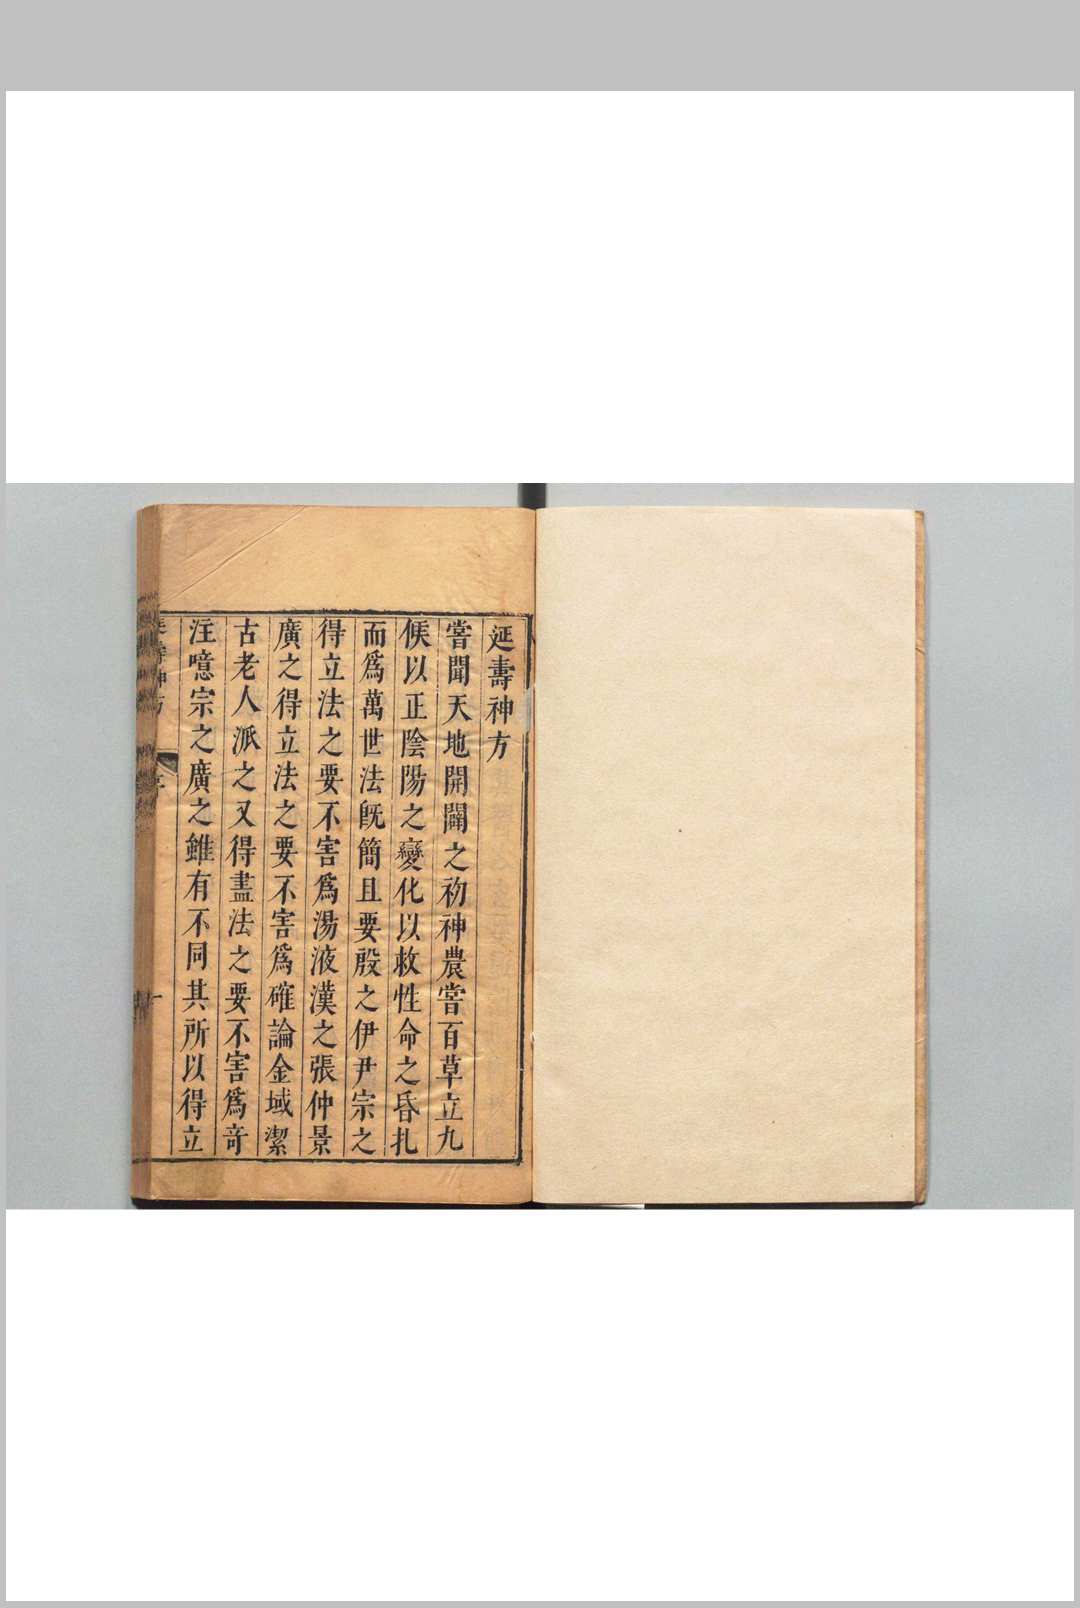 延壽神方
嘗聞天地開闢之初神農嘗百草立九
候以正陰陽之變化以救性命之昏扎
而爲萬世法旣簡且要殷之伊尹宗之
得立法之要不害爲湯液漢之張仲景
廣之得立法之要不害爲確論金域潔
古老人派之又得盡法之要不害爲竒
注噫宗之廣之雖有不同其所以得立